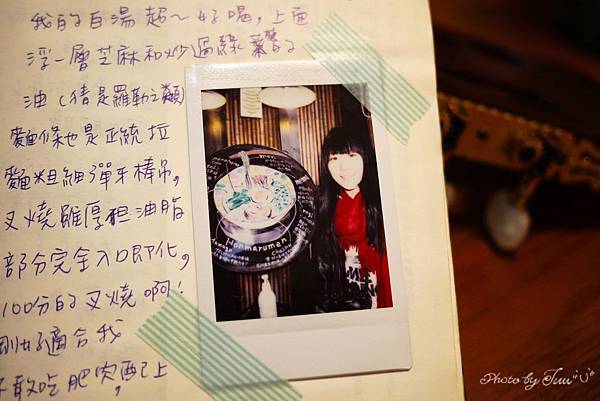 我的白湯超~好喝,上面
浮一層芝麻和炒過綠薹的
油(猜是羅勒之類)
麵條也是正統拉
麵粗細彈牙棒呆,
叉燒雖厚但油脂
部分完全入口即化,
100分的叉燒啊!
剛好適合我
不敢吃肥肉,配上
Menmarumen
Photo by Juu